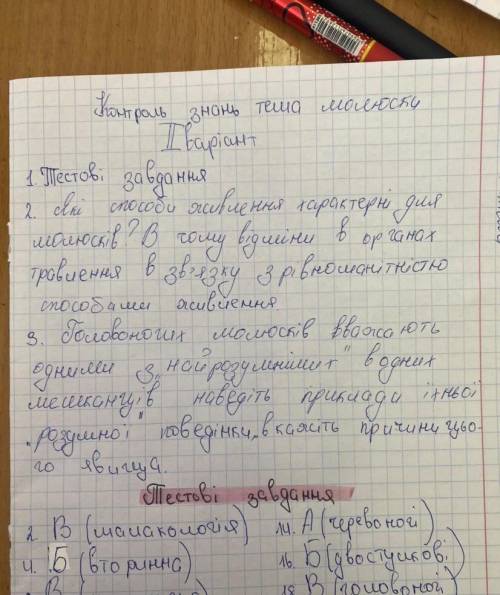 Контроль знань тема молюски
II варіант
1. Тестові завдання
2. Які способи живлення характерні для
молюсків? В чому відміни в органах
травлення в зв'язку з рівноманітністю
способами живлення.
3. Головоногих молюсків вважають
одними з "найрозумніших" водних
мешканців наведіть приклади їхньої
"розумної" поведінки, вкажіть причини цьо-
го явища.
Тестові завдання
2. В (малакологія) 14. А (черевоногі)
4. Б (вторинна) 16. Б (двостулкові)
В 18. В (головоногі)